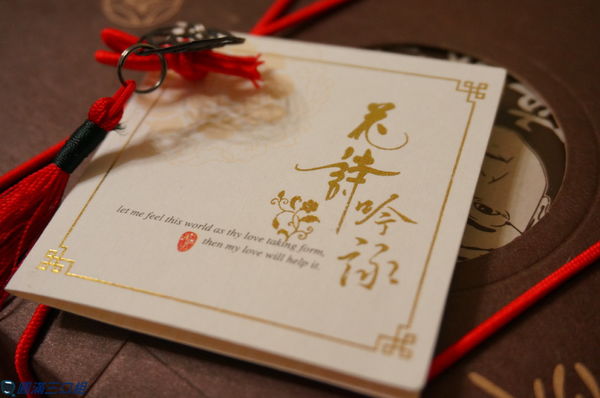 花
詩
吟
詠
let me feel this world as thy love taking form,
then my love will help it.
圓滿三亡組